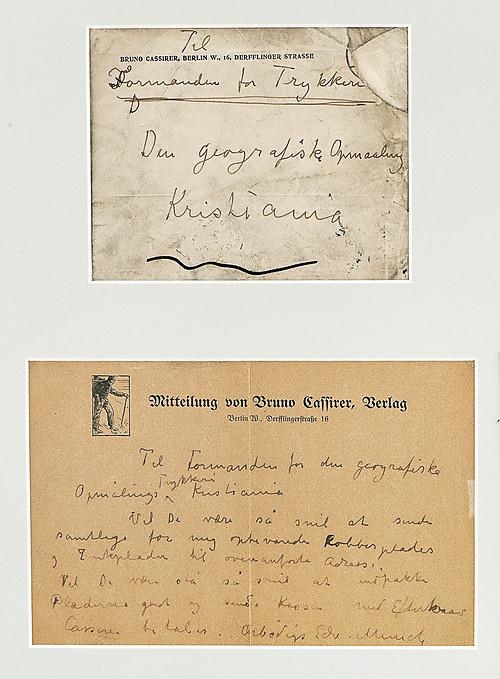 Til
BRUNO CASSIRER, BERLIN W., 16, DERFFLINGER STRASSE
Formanden for Trykkeri
D
Den geografiske Opmaaling
Kristiania
Mitteilung von Bruno Cassirer, Verlag
Berlin W., Derfflingerstraße 16
Til Formanden for den geografiske
Trykkeri
Opmålings Kristiania
Vil De være så snil at sende
samtlige for mig opbevarede Kobberplades
og Zinkplader til ovenanførte Adress.
Vil De være så snil at indpakke
Pladerne godt og sende Kassen med Efterkrav
Cassirer betaler. Ærbødigst Edv. Munch